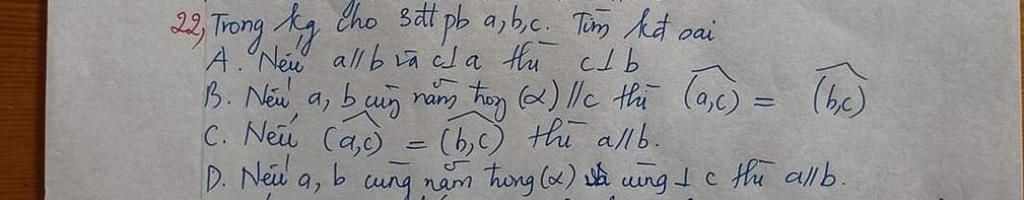 22, Trong kg cho 3đt pb a,b,c. Tìm kđ sai
A. Nếu a//b và c⊥a thì c⊥b
B. Nếu a, b cùng nằm trong (α) //c thì (a,c) = (b,c)
C. Nếu (a,c) = (b,c) thì a//b.
D. Nếu a, b cùng nằm trong (α) và cùng ⊥ c thì a//b.